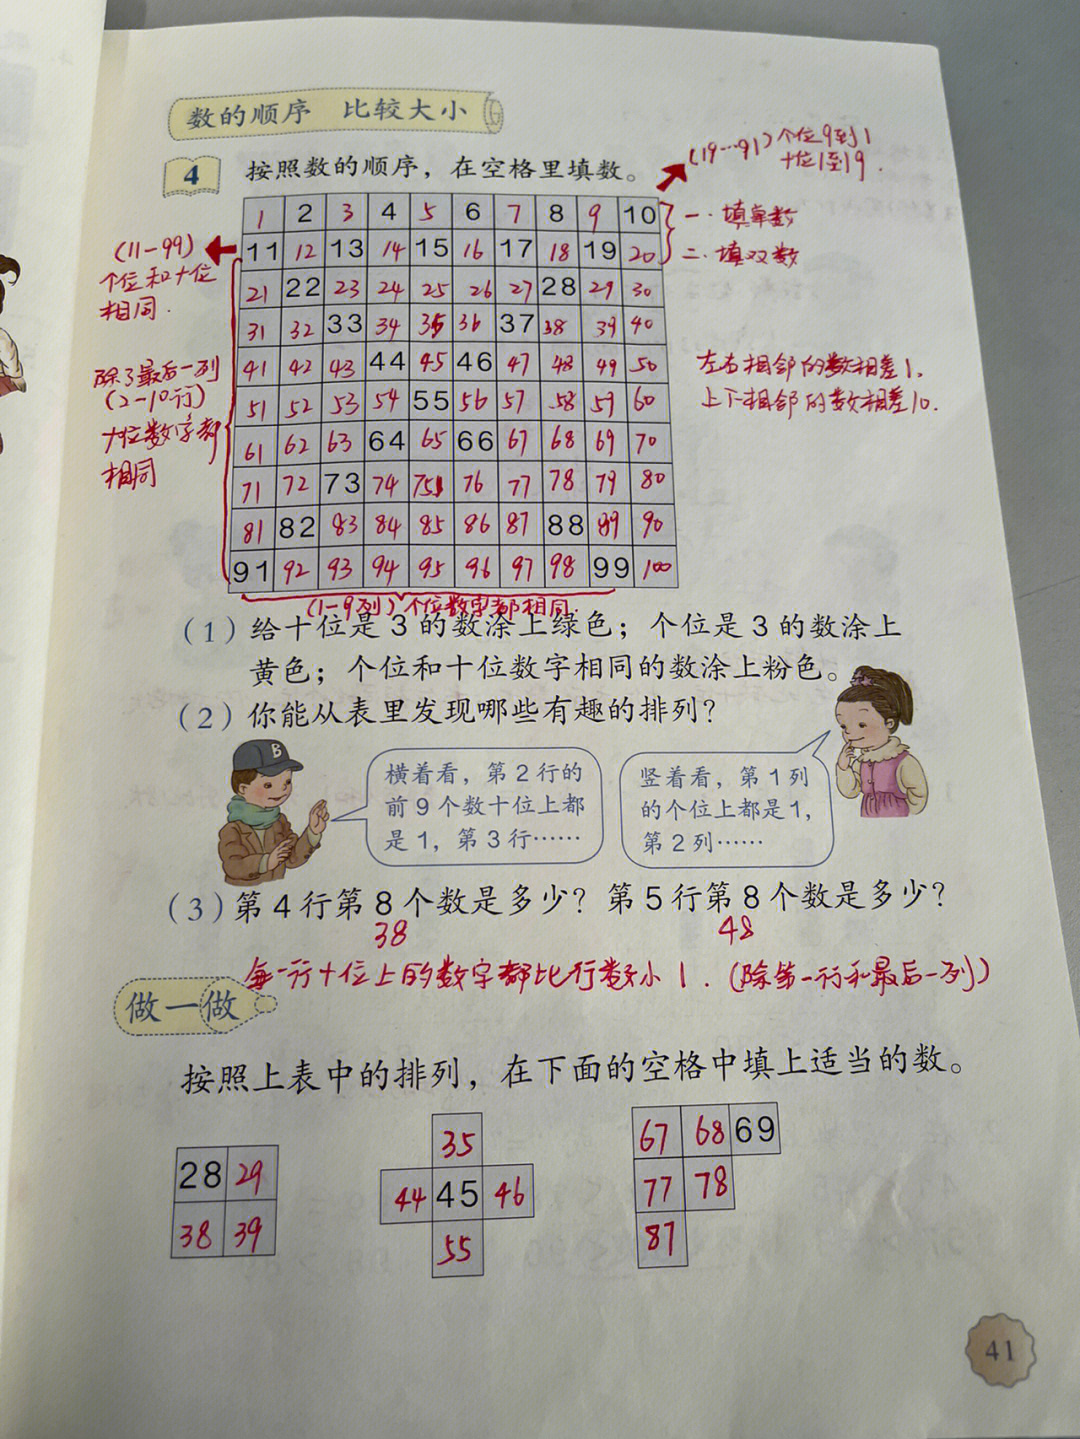 数的顺序 比较大小
4 按照数的顺序，在空格里填数。
(19…91) 个位9到1
十位1到9.
1 2 3 4 5 6 7 8 9 10
一.填单数
11 12 13 14 15 16 17 18 19 20
二.填双数
(11-99)
个位和十位
相同.
21 22 23 24 25 26 27 28 29 30
31 32 33 34 35 36 37 38 39 40
41 42 43 44 45 46 47 48 49 50
51 52 53 54 55 56 57 58 59 60
61 62 63 64 65 66 67 68 69 70
71 72 73 74 75 76 77 78 79 80
81 82 83 84 85 86 87 88 89 90
91 92 93 94 95 96 97 98 99 100
除了最后一列
(2-10行)
十位数字都
相同
左右相邻的数相差1,
上下相邻的数相差10.
(1-9列)个位数字都相同.
(1)给十位是3的数涂上绿色；个位是3的数涂上
黄色；个位和十位数字相同的数涂上粉色。
(2)你能从表里发现哪些有趣的排列？
B
横着看，第2行的
前9个数十位上都
是1，第3行……
竖着看，第1列
的个位上都是1，
第2列……
(3)第4行第8个数是多少？第5行第8个数是多少？
38 48
每一行十位上的数字都比行数小1.(除第一行和最后一列)
做一做
按照上表中的排列，在下面的空格中填上适当的数。
28 29
38 39
35
44 45 46
55
67 68 69
77 78
87
41